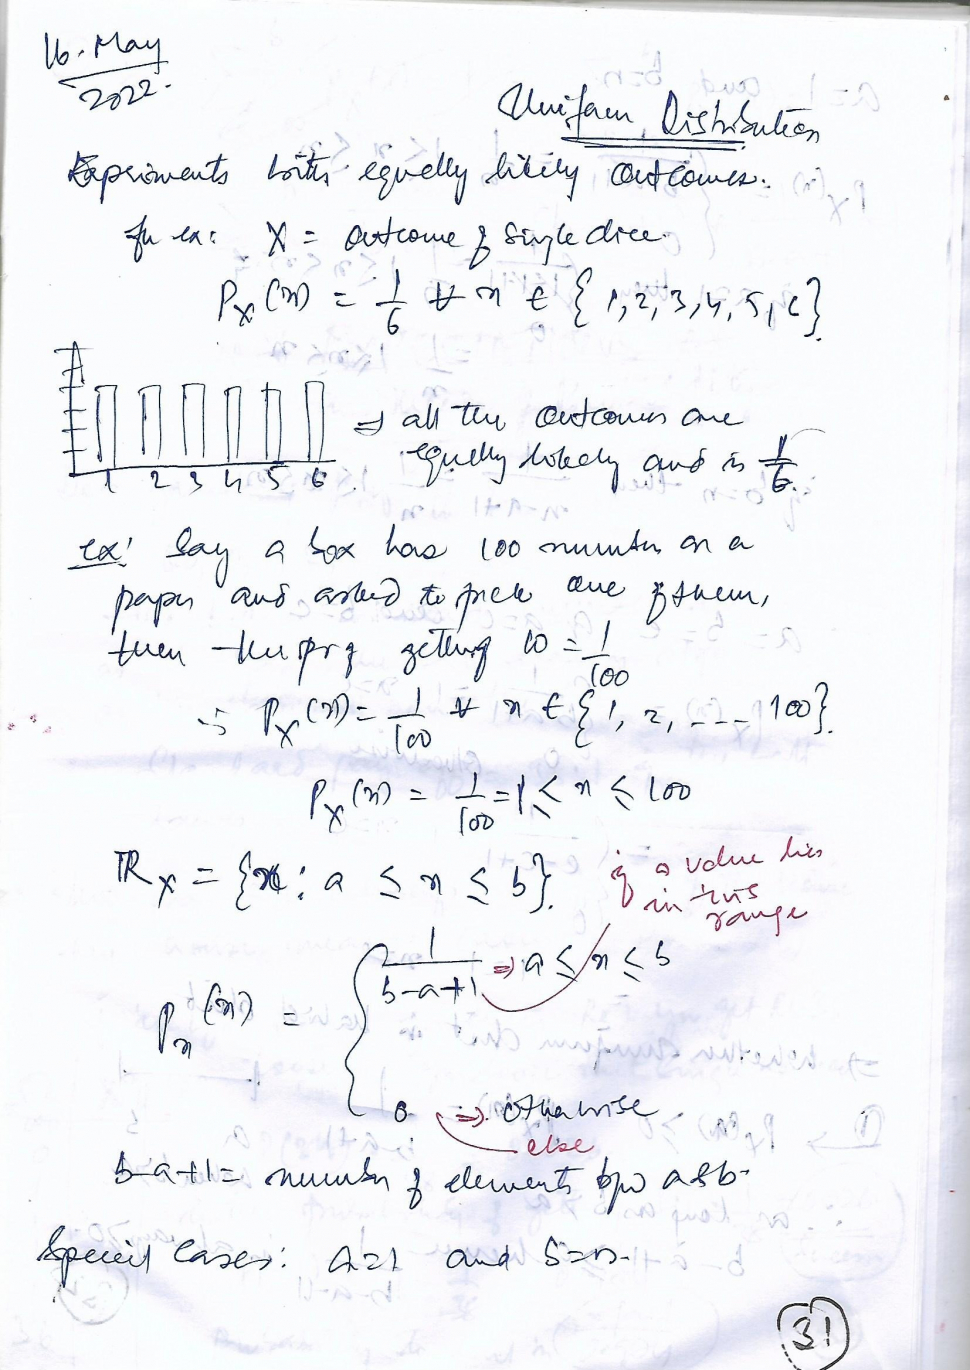 16. May
2022.
Uniform Distribution
Experiments with equelly likely outcomes.
for ex: X = outcome of single dice.
P_X(x) = 1/6 ∀ x ∈ {1,2,3,4,5,6}
1 2 3 4 5 6
⇒ all the outcomes are
equelly likely and is 1/6.
ex: Say a box has 100 number on a
paper and asked to pick one of them,
then the pr of getting 10 = 1/100
∴ P_X(x) = 1/100 ∀ x ∈ {1, 2, --- 100}.
P_X(x) = 1/100 = 1 ≤ x ≤ 100
R_X = {x : a ≤ x ≤ b}.
if a value lies
in this
range
P_x(x) = { 1/(b-a+1) ⇒ a ≤ x ≤ b
0 ⇒ otherwise
else
b-a+1 = number of elements b/w a & b.
Special Cases: a=1 and b=n.
31